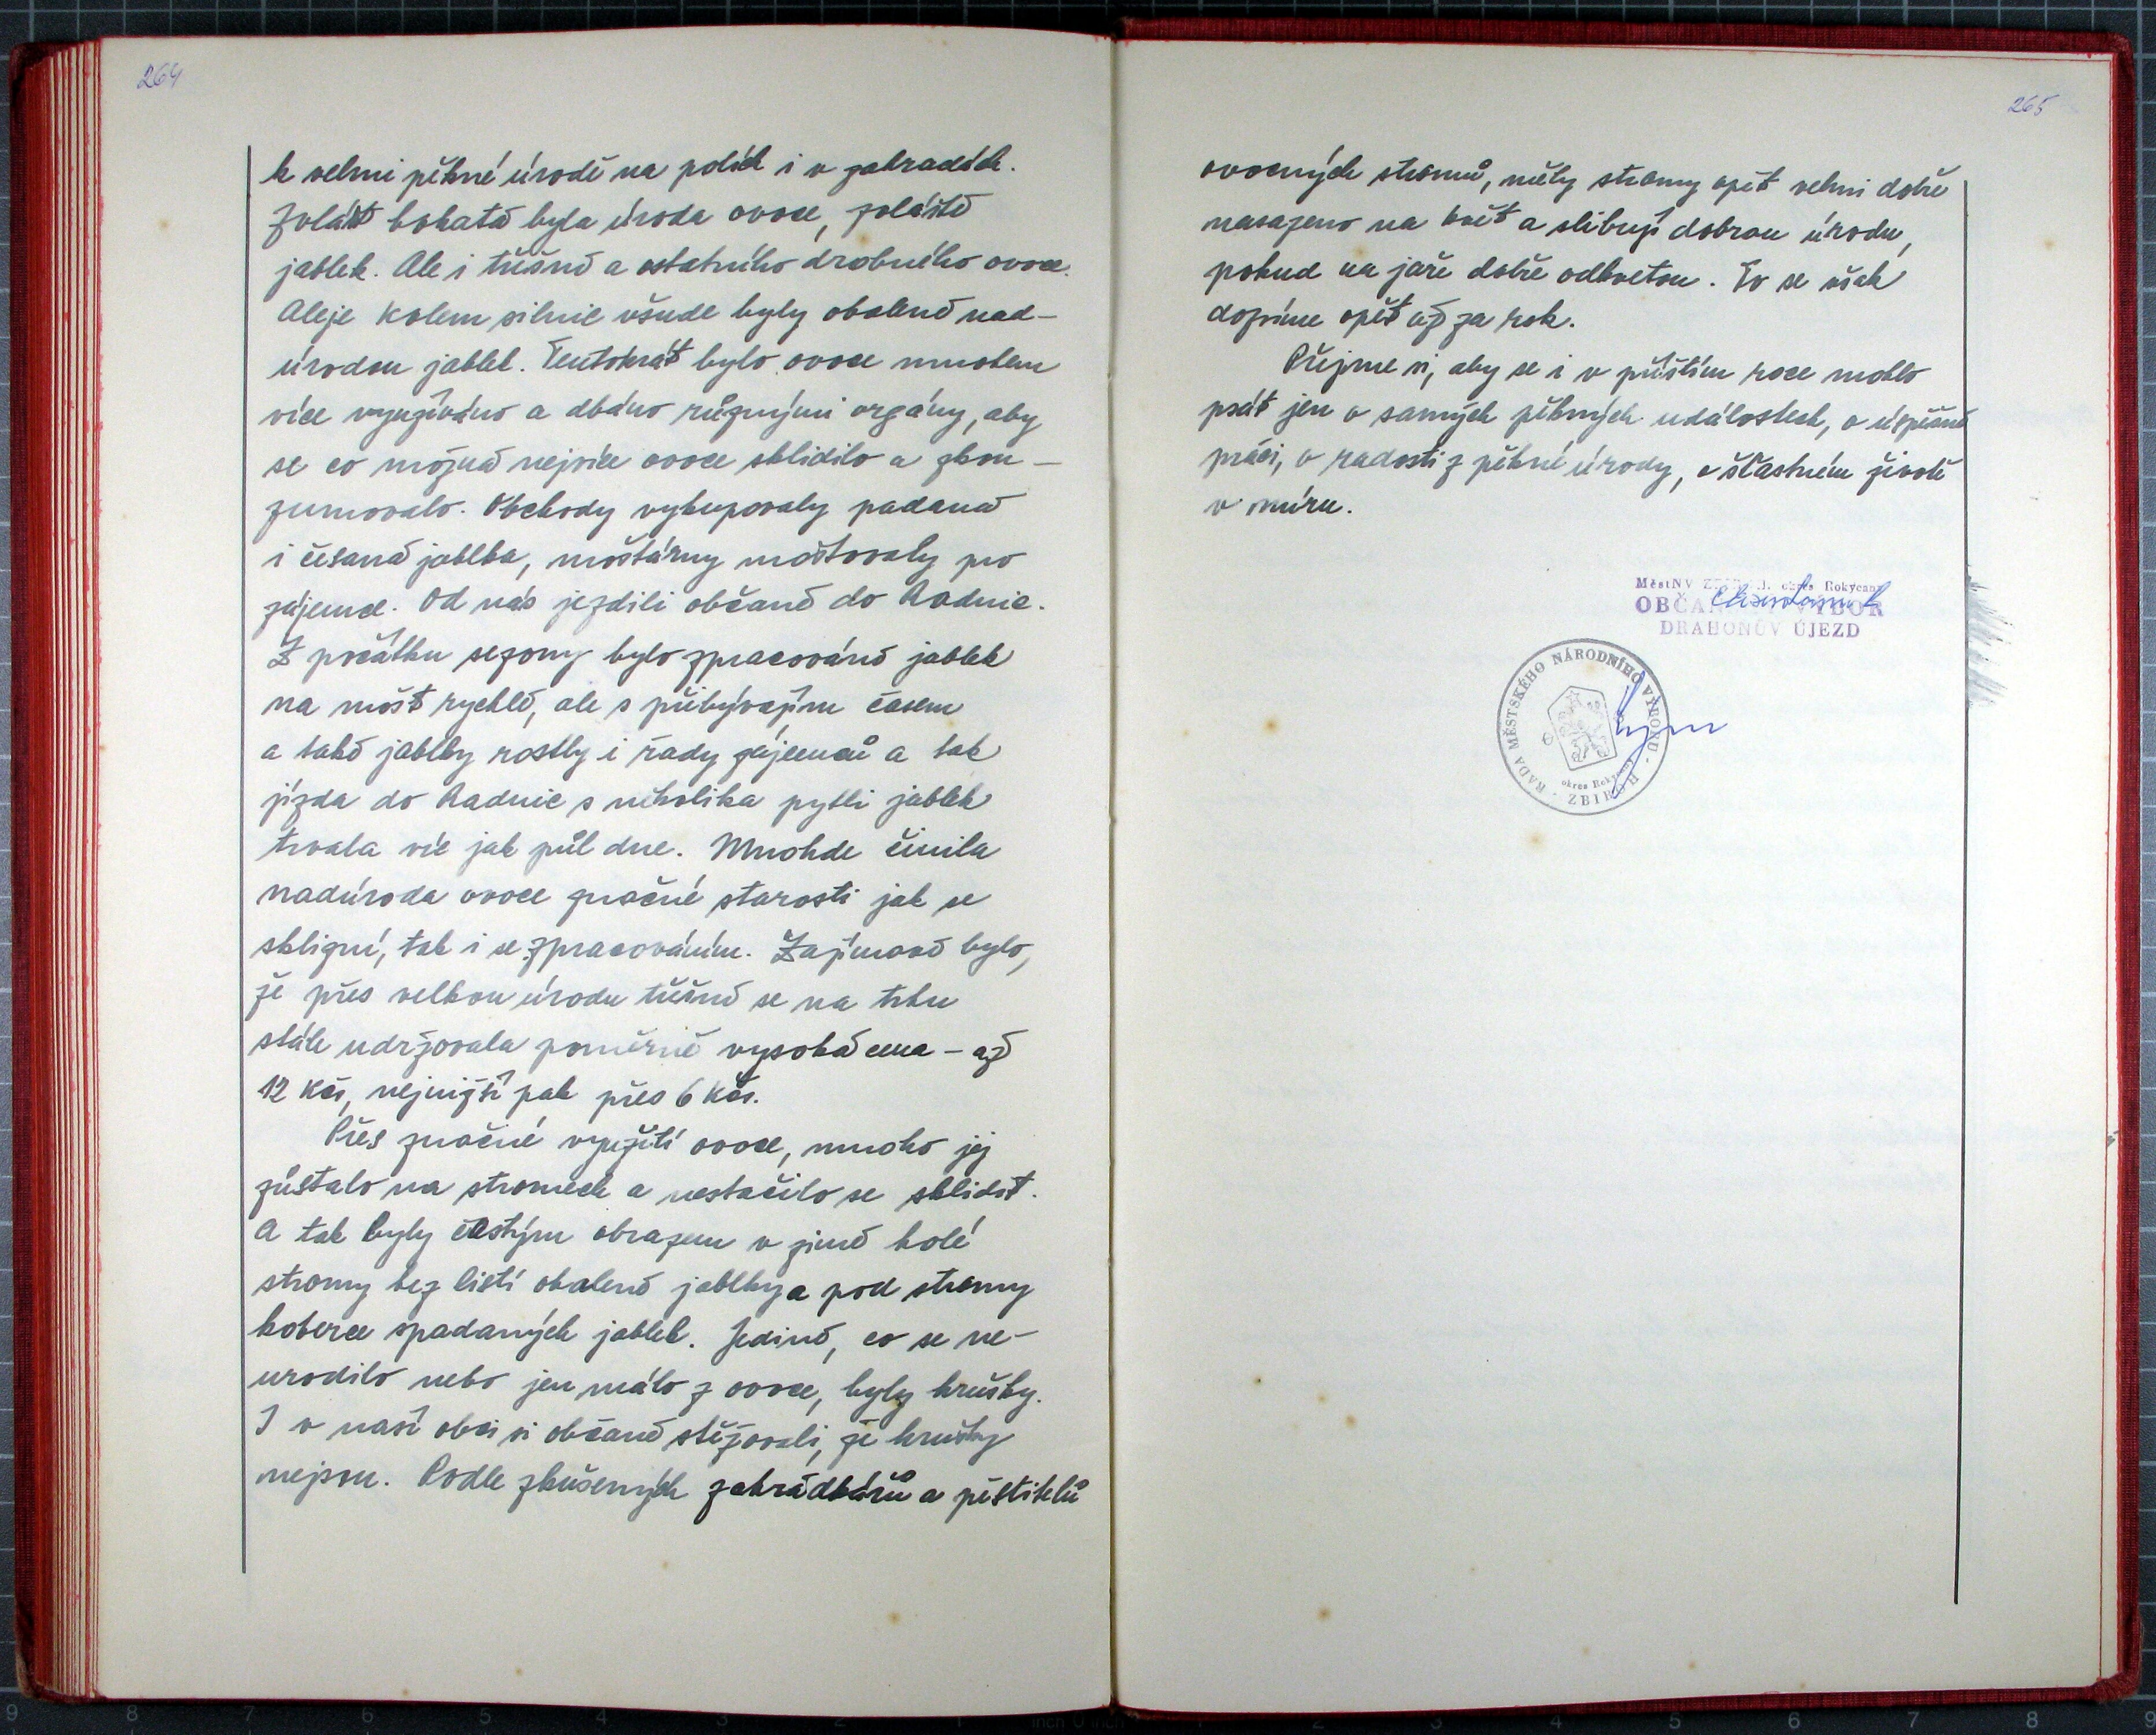 264
k velmi pěkné úrodě na polích i v zahradách.
Zvlášť bohatá byla úroda ovoce, zvláště
jablek. Ale i třešně a ostatního drobného ovoce.
Aleje kolem silnic všude byly obaleně nad-
úrodou jablek. Tentokrát bylo ovoce mnohem
více využíváno a dbáno různými orgány, aby
se co možná nejvíce ovoce sklidilo a zkon-
zumovalo. Obchody vykupovaly padaná
i česaná jablka, moštárny moštovaly pro
zájemce. Od nás jezdili občané do Radnic.
Z počátku sezony bylo zpracováno jablek
na mošt rychlé, ale s přibývajím časem
a také jablky rostly i řady zájemců a tak
jízda do Radnic s několika pytli jablek
trvala víc jak půl dne. Mnohde činila
nadúroda ovoce značné starosti jak se
sklizní, tak i se zpracováním. Zajímavé bylo,
že přes velkou úrodu třešně se na trhu
stále udržovala poměrně vysoká cena - až
12 Kčs, nejnižší pak přes 6 Kčs.
Přes značné využití ovoce, mnoho jej
zůstalo na stromech a nestačilo se sklidit.
A tak byly častým obrazem v zimě holé
stromy bez listí obalené jablky a pod stromy
koberce spadaných jablek. Jediné, co se ne-
urodilo nebo jen málo z ovoce, byly hrušky.
I v naší obci si občané stěžovali, že hrušky
nejsou. Podle zkušených zahrádkářů a pěstitelů
265
ovocných stromů, měly stromy opět velmi dobře
nasazeno na květ a slibují dobrou úrodu,
pokud na jaře dobře odkvetou. To se však
dozvíme opět až za rok.
Přejme si, aby se i v příštím roce mohlo
psát jen o samých pěkných událostech, o úspěšné
práci, o radosti z pěkné úrody, o šťastném životě
v míru.
MěstNV okres Rokycany
OBČANSKÝ VÝBOR
DRAHONŮV ÚJEZD
RADA MĚSTSKÉHO NÁRODNÍHO VÝBORU · ZBIROH ·
okres Rokycany